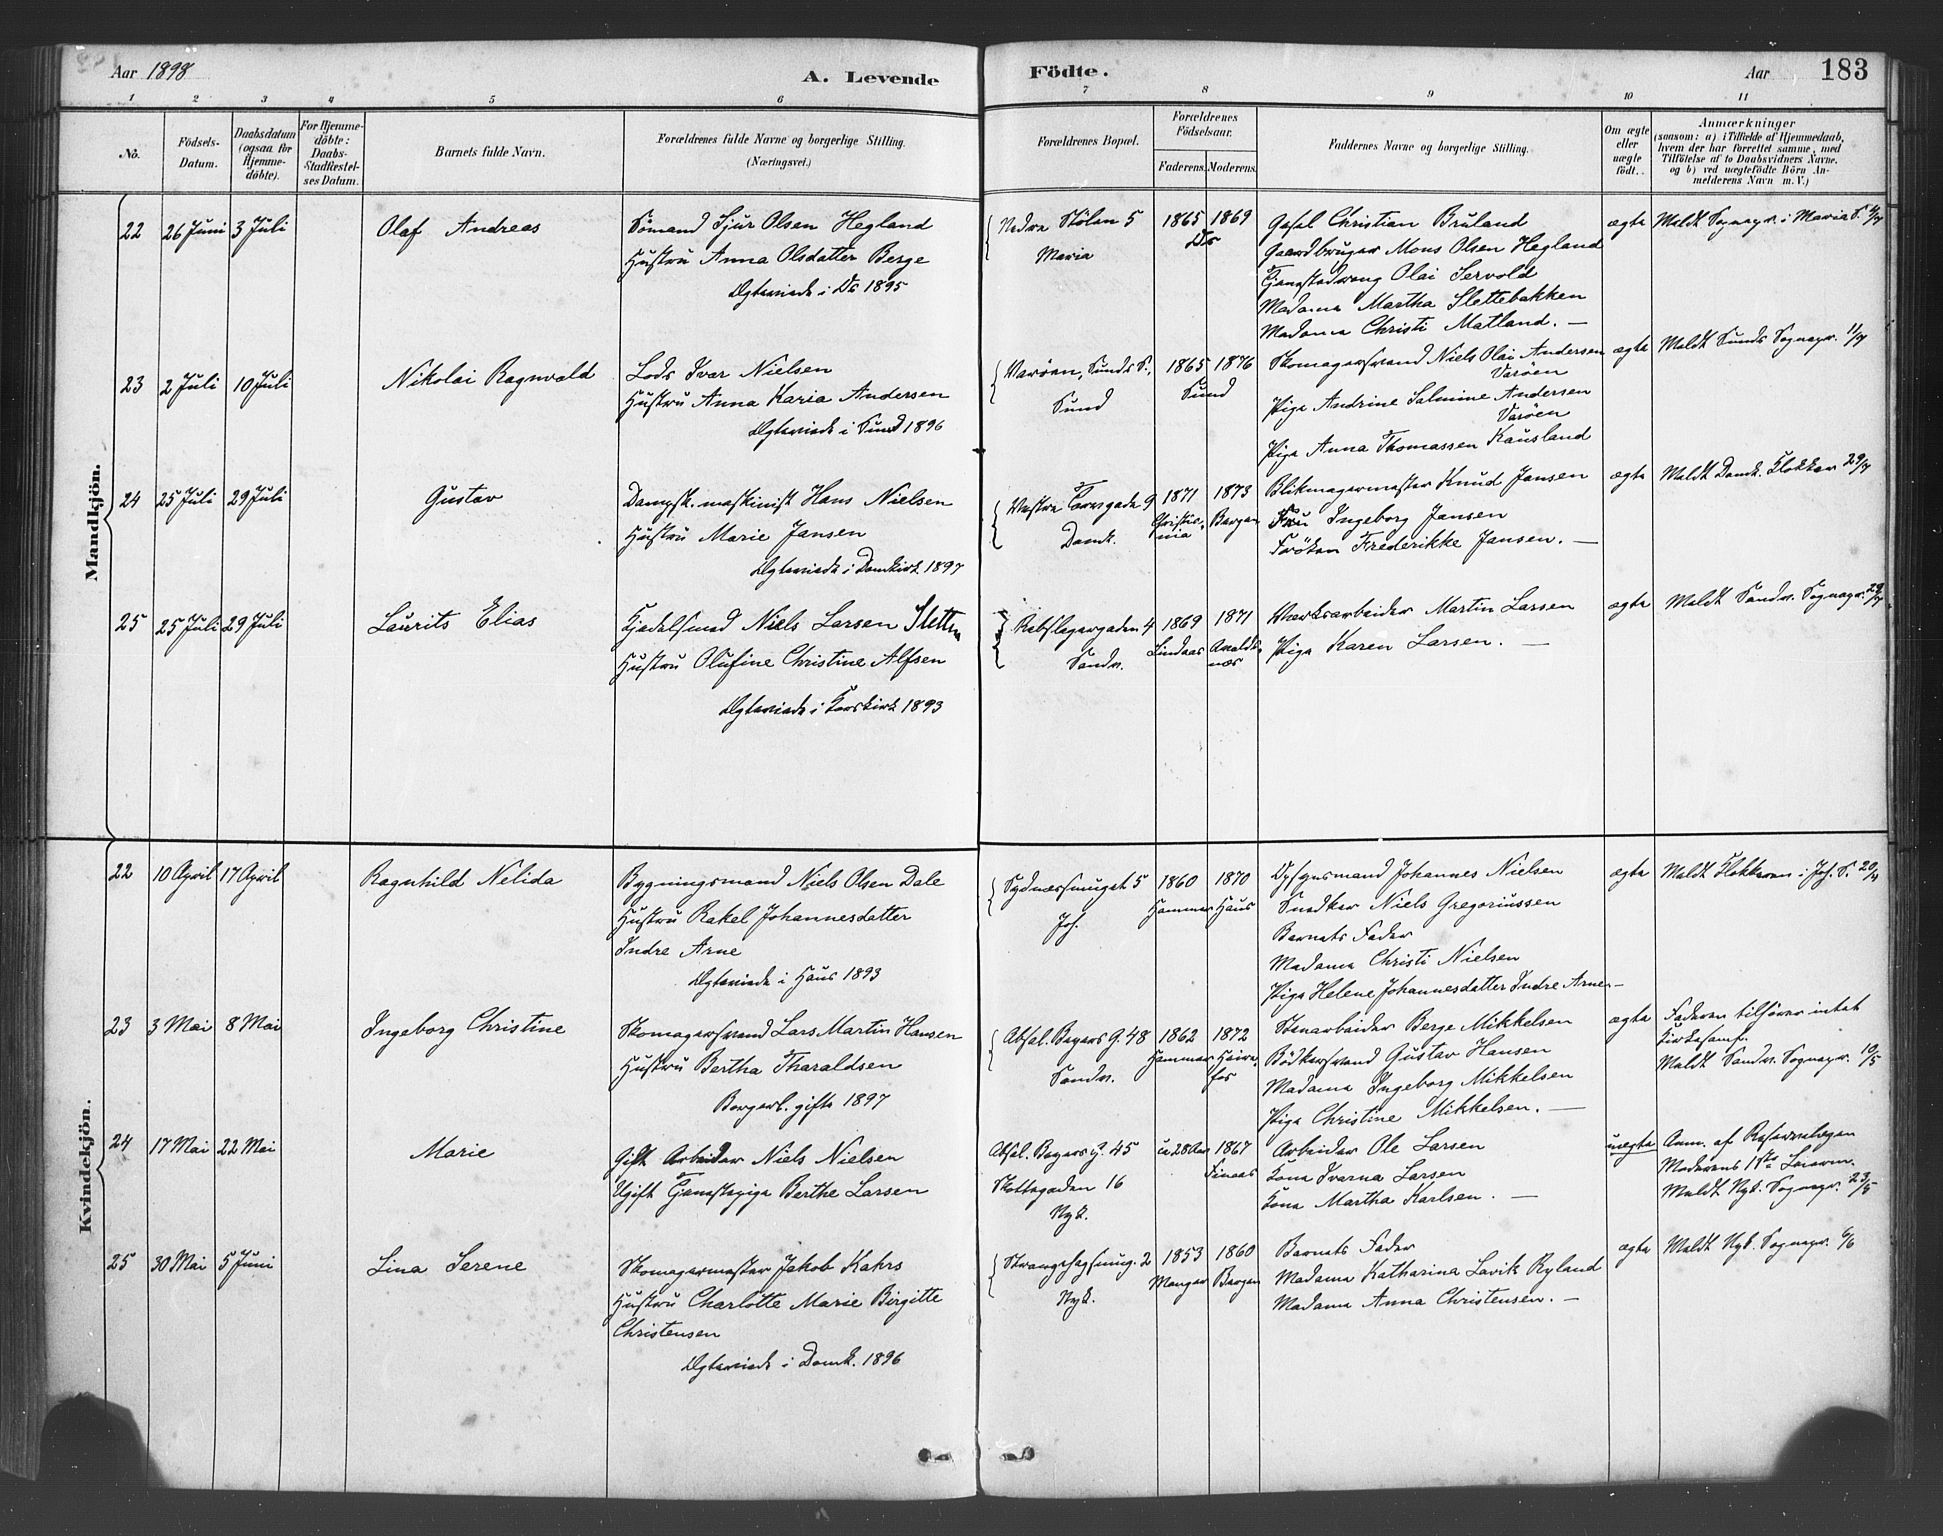 Aar 1898
A. Levende
Födte.
Aar
183
1 2 3 4 5 6 7 8 9 10 11
No.
Födsels-
Datum.
Daabsdatum
(ogsaa for
Hjemme-
döbte).
For Hjemme-
döbte:
Daabs-
Stadfæstel-
ses Datum.
Barnets fulde Navn.
Forældrenes fulde Navne og borgerlige Stilling.
(Næringsvei.)
Forældrenes Bopæl.
Forældrenes
Födselsaar.
Faderens. Moderens.
Faddernes Navne og borgerlige Stilling.
Om ægte
eller
uægte
födt.
Anmærkninger
(saasom: a) i Tilfælde af Hjemmedaab,
hvem der har forrettet samme, med
Tilföielse af to Daabsvidners Navne,
og b) ved uægtefödte Börn An-
melderens Navn m. V.)
Mandkjön.
22 26 Juni 3 Juli
Olaf Andreas
Sömand Sjur Olsen Hegland
Hustru Anna Olsdatter Berge
Ægteviede i Do 1895
Nedre Stölen 5
Maria
1865 1869
Do
Christian Bruland
Gaardbruger Mons Olsen Hegland
Olai Servold
Madame Martha Slettebakken
Madame Christi Matland. —
ægte
Meldt Sognepr. i Maria S.
23 2 Juli 10 Juli
Nikolai Ragnvald
Lods Ivar Nielsen
Hustru Anna Karia Andersen
Ægteviede i Sund 1896
Varöen, Sunds S.,
Sund
1865 1876
Sund
Skomagersvend Niels Olai Andersen
Varöen
Pige Andrine Salmine Andersen
Varöen
Pige Anna Thomassen Kausland
ægte
Meldt Sunds Sognepr. 11/7
24 25 Juli 29 Juli
Gustav
Dampsk. maskinist Hans Nielsen
Hustru Marie Jansen
Ægteviede i Domkirk 1897
Vestre Torvgade 9
Domk.
1871 1873
Christia-
nia
Bergen
Blikmagermester Knud Jansen
Fru Ingeborg Jansen
Fröken Frederikke Jansen. —
ægte
Meldt Domk. Klokker 29/7
25 25 Juli 29 Juli
Laurits Elias
Kjedelsmed Niels Larsen Sletten
Hustru Olufine Christine Alfsen
Ægteviede i Korskirk 1893
Rebslagergaden 4
Sandv.
1869 1871
Lindaas
Avalds-
næs
Værksarbeider Martin Larsen
Pige Karen Larsen. —
ægte
Meldt Sandv. Sognepr. 29/7
Kvindekjön.
22 10 April 17 April
Ragnhild Nelida
Bygningsmand Niels Olsen Dale
Hustru Rakel Johannesdatter
Indre Arne
Ægteviede i Haus 1893
Sydnæssmuget 5
Joh.
1860 1870
Hammer Haus
Johannes Nielsen
Snedker Niels Gregoriussen
Barnets Fader
Madame Christi Nielsen
Pige Helene Johannesdatter Indre Arne —
ægte
Meldt Klokkeren i Joh. S. 20/4
23 3 Mai 8 Mai
Ingeborg Christine
Skomagersvend Lars Martin Hansen
Hustru Bertha Tharaldsen
Borgerl. gifte 1897
Absal. Beyers G. 48
Sandv.
1862 1872
Hammer
Stenarbeider Berge Mikkelsen
Bödkersvend Gustav Hansen
Madame Ingeborg Mikkelsen
Pige Christine Mikkelsen. —
ægte
Faderen tilhörer intet
Kirkesamf.
Meldt Sandv. Sognepr. 10/5
24 17 Mai 22 Mai
Marie
Gift Arbeider Niels Nielsen
Ugift Tjenestepige Berthe Larsen
Absal. Beyers G. 45
Skottegaden 16
Nyk.
ca 28 Aar 1867
Arbeider Ole Larsen
Kone Larsen
Kone Martha Karlsen. —
uægte
Anm. af
Moderens 1ste Leierm.
Meldt Nyk. Sognepr. 23/5
25 30 Mai 5 Juni
Lina Serene
Skomagermester Jakob Kahrs
Hustru Charlotte Marie Birgitte
Christensen
Ægteviede i Domk. 1896
Strangehagsmug. 2
Nyk.
1853 1860
Manger Bergen
Barnets Fader
Madame Katharina Lavik Ryland
Madame Anna Christensen. —
ægte
Meldt Nyk. Sognepr. 6/6